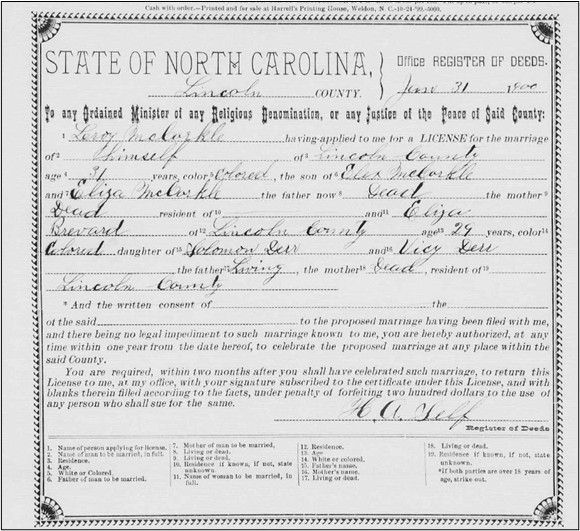 Cash with order.—Printed and for sale at Harrell's Printing House, Weldon, N. C.-10-24-'99.-5000.
STATE OF NORTH CAROLINA, Office REGISTER OF DEEDS.
Lincoln COUNTY. 31 1900
To any Ordained Minister of any Religious Denomination, or any Justice of the Peace of Said County:
1 Leroy McCorkle having applied to me for a LICENSE for the marriage
of2 himself of3 Lincoln County
age4 31 years, color5 Colored, the son of6 Elex McCorkle
and7 Eliza McCorkle the father now8 Dead the mother9
Dead resident of10 and11 Eliza
Brevard of12 Lincoln County age13 29 years, color14
Colored daughter of15 Solomon Derr and16 Vicy Derr
the father17 Living, the mother18 Dead, resident of19
Lincoln County
* And the written consent of the
of the said to the proposed marriage having been filed with me,
and there being no legal impediment to such marriage known to me, you are hereby authorized, at any
time within one year from the date hereof, to celebrate the proposed marriage at any place within the
said County.
You are required, within two months after you shall have celebrated such marriage, to return this
License to me, at my office, with your signature subscribed to the certificate under this License, and with
blanks therein filled according to the facts, under penalty of forfeiting two hundred dollars to the use of
any person who shall sue for the same.
H. A. Self
Register of Deeds
1. Name of person applying for license.
2. Name of man to be married, in full.
3. Residence.
4. Age.
5. White or Colored.
6. Father of man to be married.
7. Mother of man to be married.
8. Living or dead.
9. Living or dead.
10. Residence if known, if not, state unknown.
11. Name of woman to be married, in full.
12. Residence.
13. Age.
14. White or colored.
15. Father's name.
16. Mother's name.
17. Living or dead.
18. Living or dead.
19. Residence if known, if not, state unknown.
*If both parties are over 18 years of age, strike out.